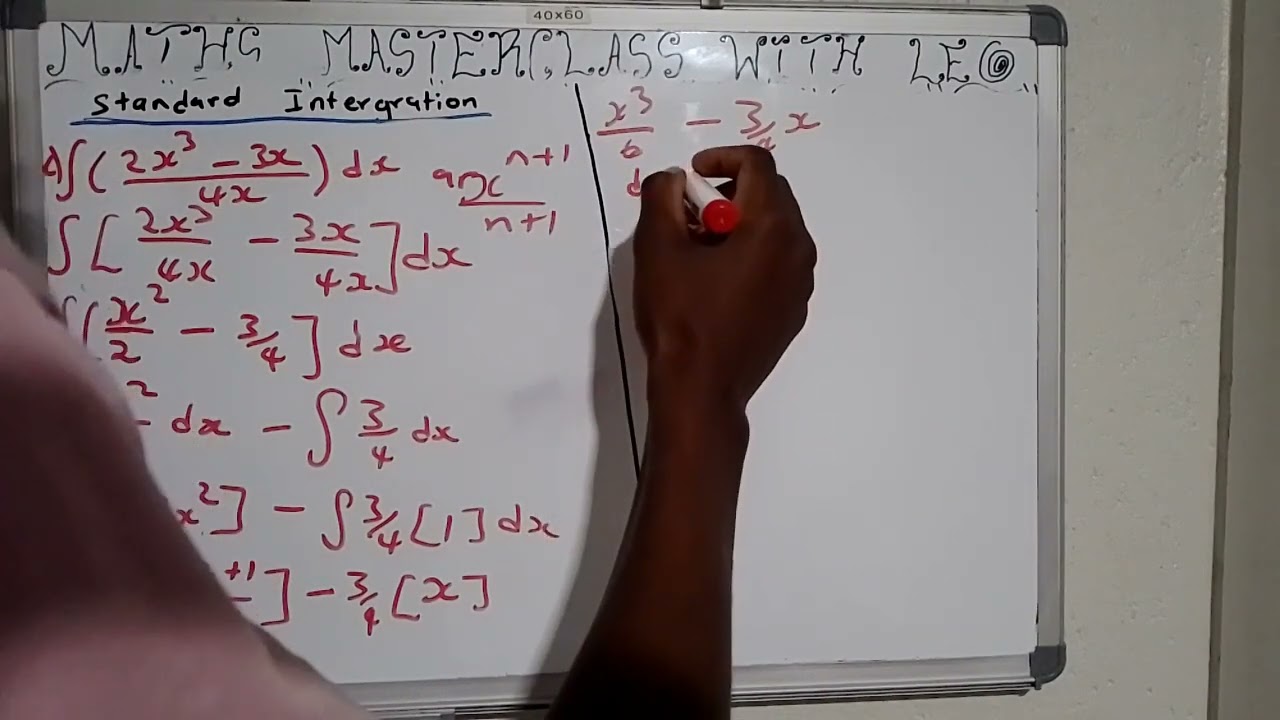 40x60
MATHS MASTERCLASS WITH LEO
Standard Intergration
a) ∫( 2x³ - 3x / 4x ) dx
axⁿ⁺¹ / n+1
∫[ 2x³ / 4x - 3x / 4x ] dx
∫[ x² / 2 - 3/4 ] dx
² dx - ∫ 3/4 dx
x² ] - ∫ 3/4 [1] dx
+1 ] - 3/4 [x]
x³ / 6 - 3/4 x